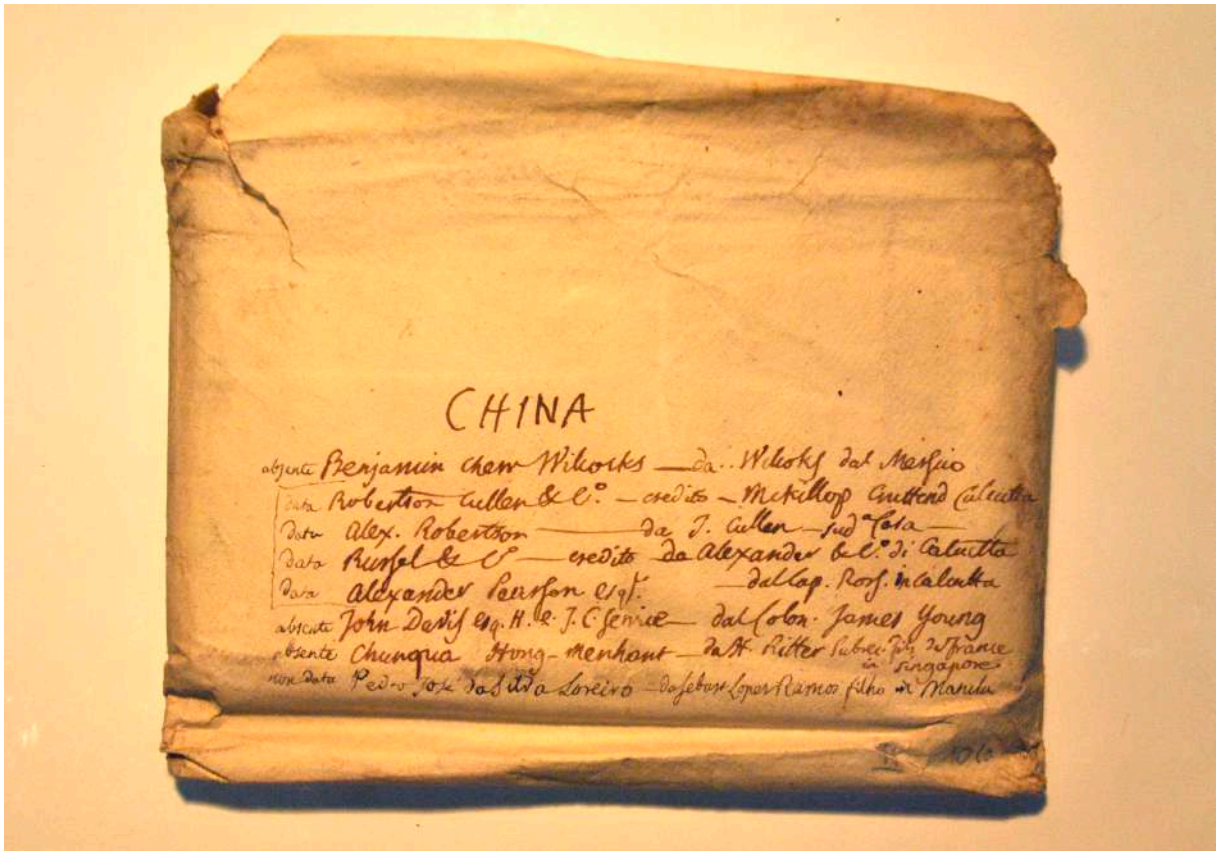 CHINA
absente Benjamin chew Wilcocks — da Wilcoks dal Messico
data Robertson Cullen & C.º — credito — McKillop Cruttend Calcutta
data Alex. Robertson — da J. Cullen — sud.ª Casa —
data Russel & Cº — credito da Alexander & C.º di Calcutta
data Alexander Pearson esq.r dal Cap. Ross. in Calcutta
absente John Davis esq. H. e. I. C. Service — dal Colon. James Young
absente Chunqua Hong-merchant — da H. Ritter de France
in Singapore
non data Pedro José da Silva Loreiro — da Sebast Lopes Ramos filho in Manila